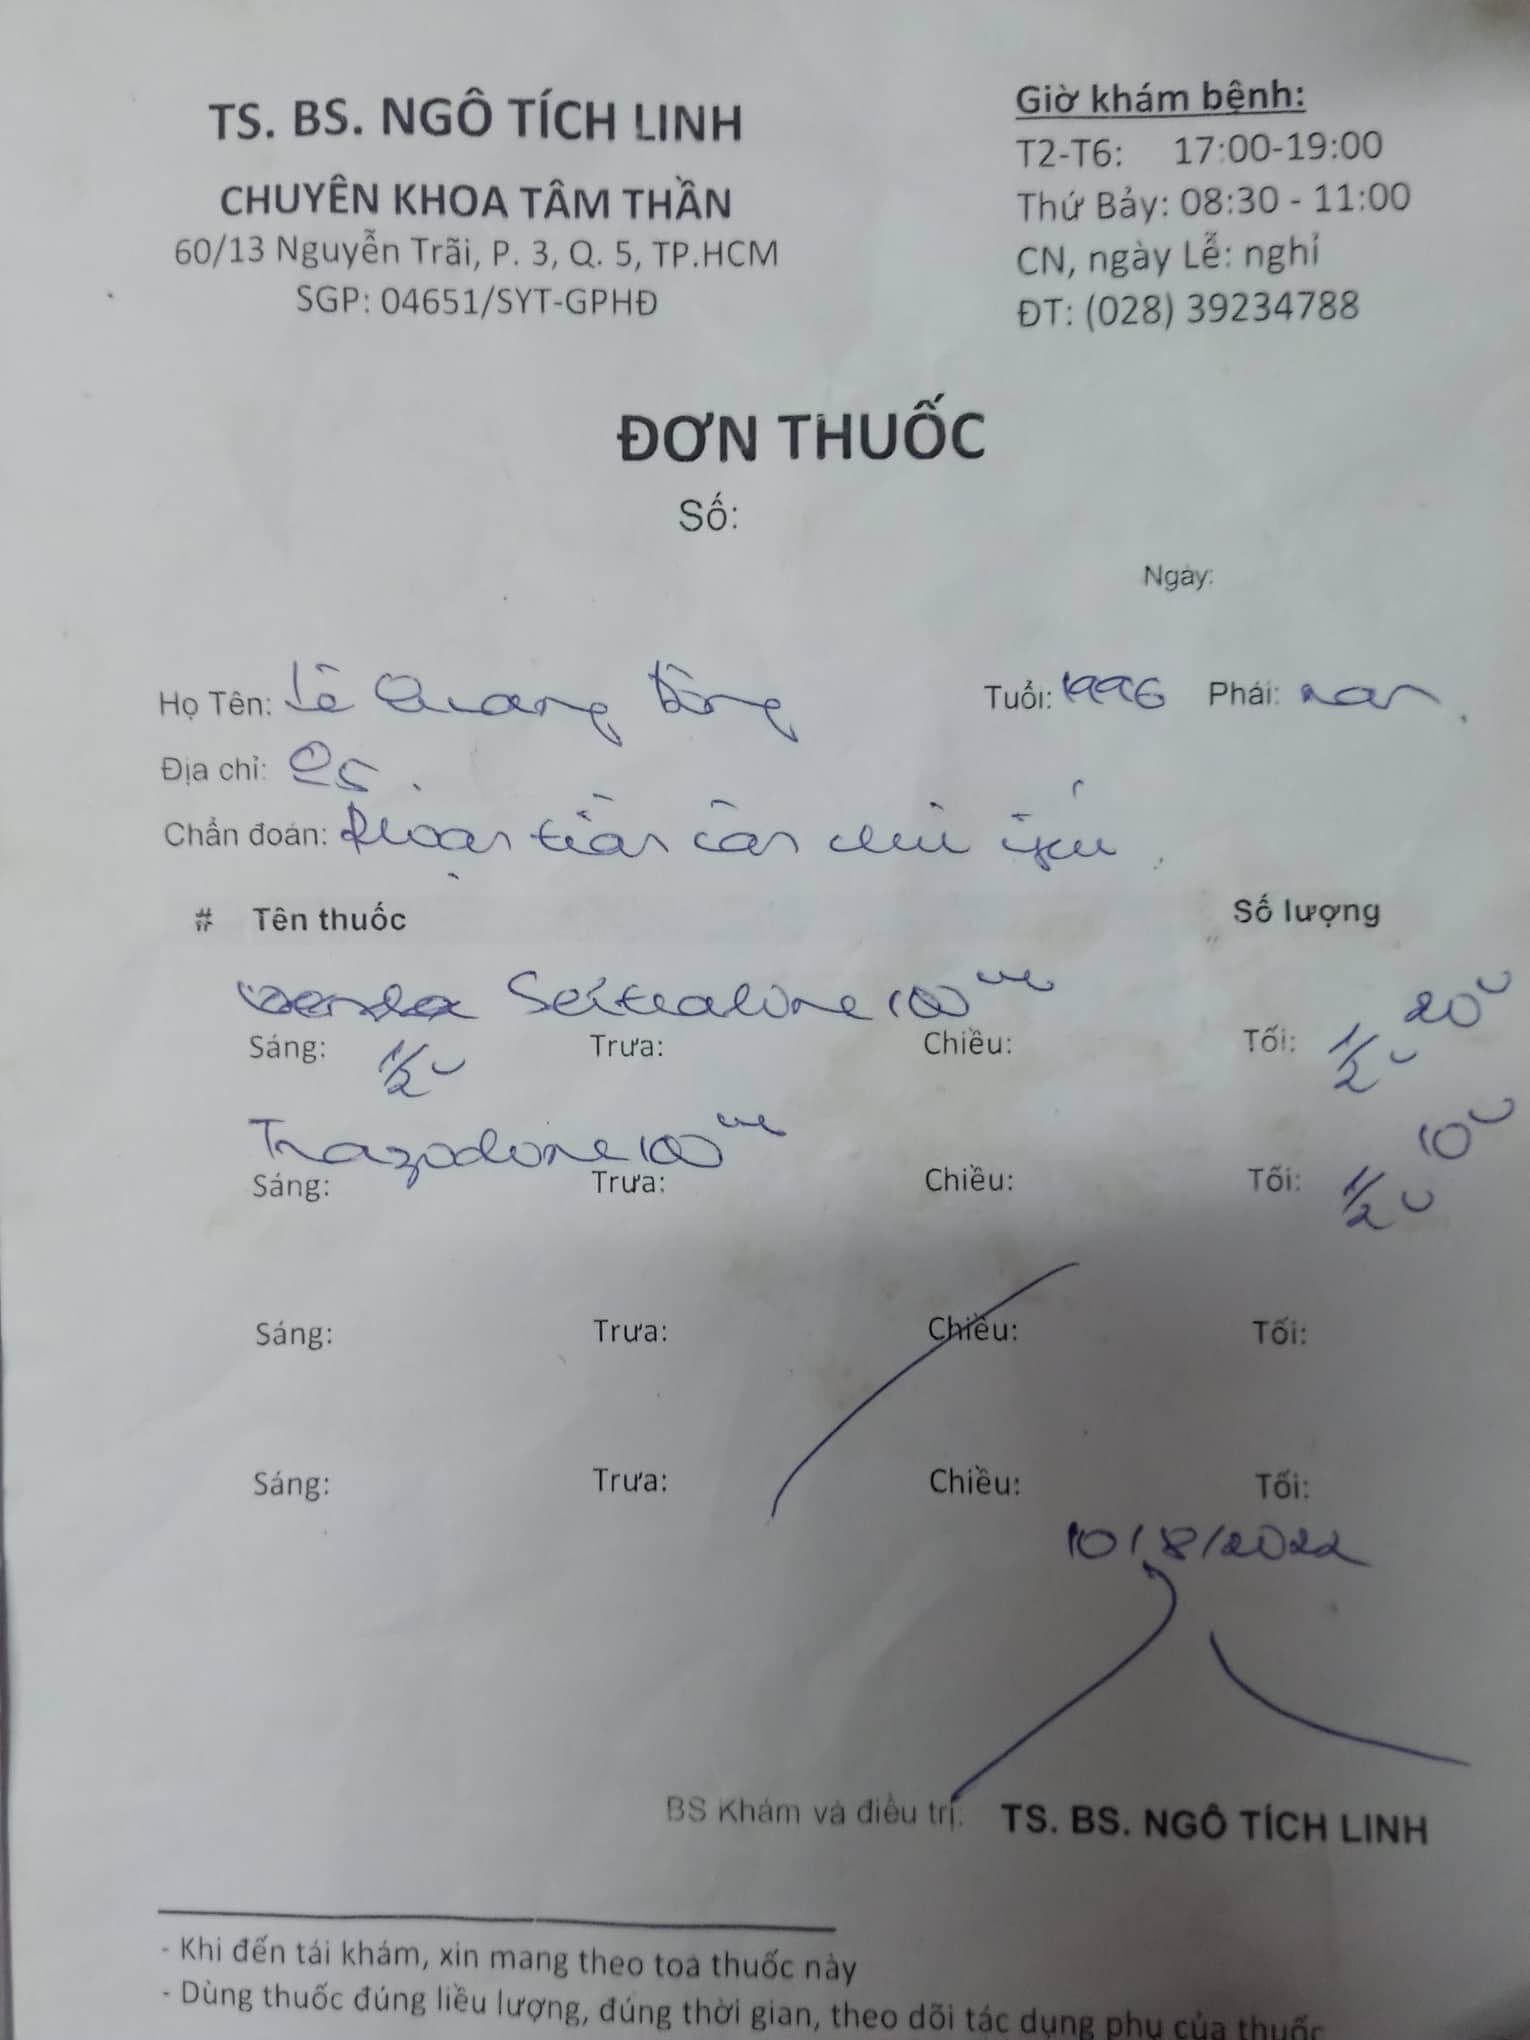 TS. BS. NGÔ TÍCH LINH
CHUYÊN KHOA TÂM THẦN
60/13 Nguyễn Trãi, P. 3, Q. 5, TP.HCM
SGP: 04651/SYT-GPHĐ
Giờ khám bệnh:
T2-T6: 17:00-19:00
Thứ Bảy: 08:30 - 11:00
CN, ngày Lễ: nghỉ
ĐT: (028) 39234788
ĐƠN THUỐC
Số:
Ngày:
Họ Tên: Lê Quang Tuổi: 1996 Phái: nam
Địa chỉ: Q5
Chẩn đoán: trầm cảm chủ yếu
# Tên thuốc Số lượng
Sertraline 100 mg 20v
Sáng: 1/2v Trưa: Chiều: Tối: 1/2v
Trazodone 100 mg 10v
Sáng: Trưa: Chiều: Tối: 1/2v
Sáng: Trưa: Chiều: Tối:
Sáng: Trưa: Chiều: Tối:
10/8/2022
BS Khám và điều trị: TS. BS. NGÔ TÍCH LINH
- Khi đến tái khám, xin mang theo toa thuốc này
- Dùng thuốc đúng liều lượng, đúng thời gian, theo dõi tác dụng phụ của thuốc